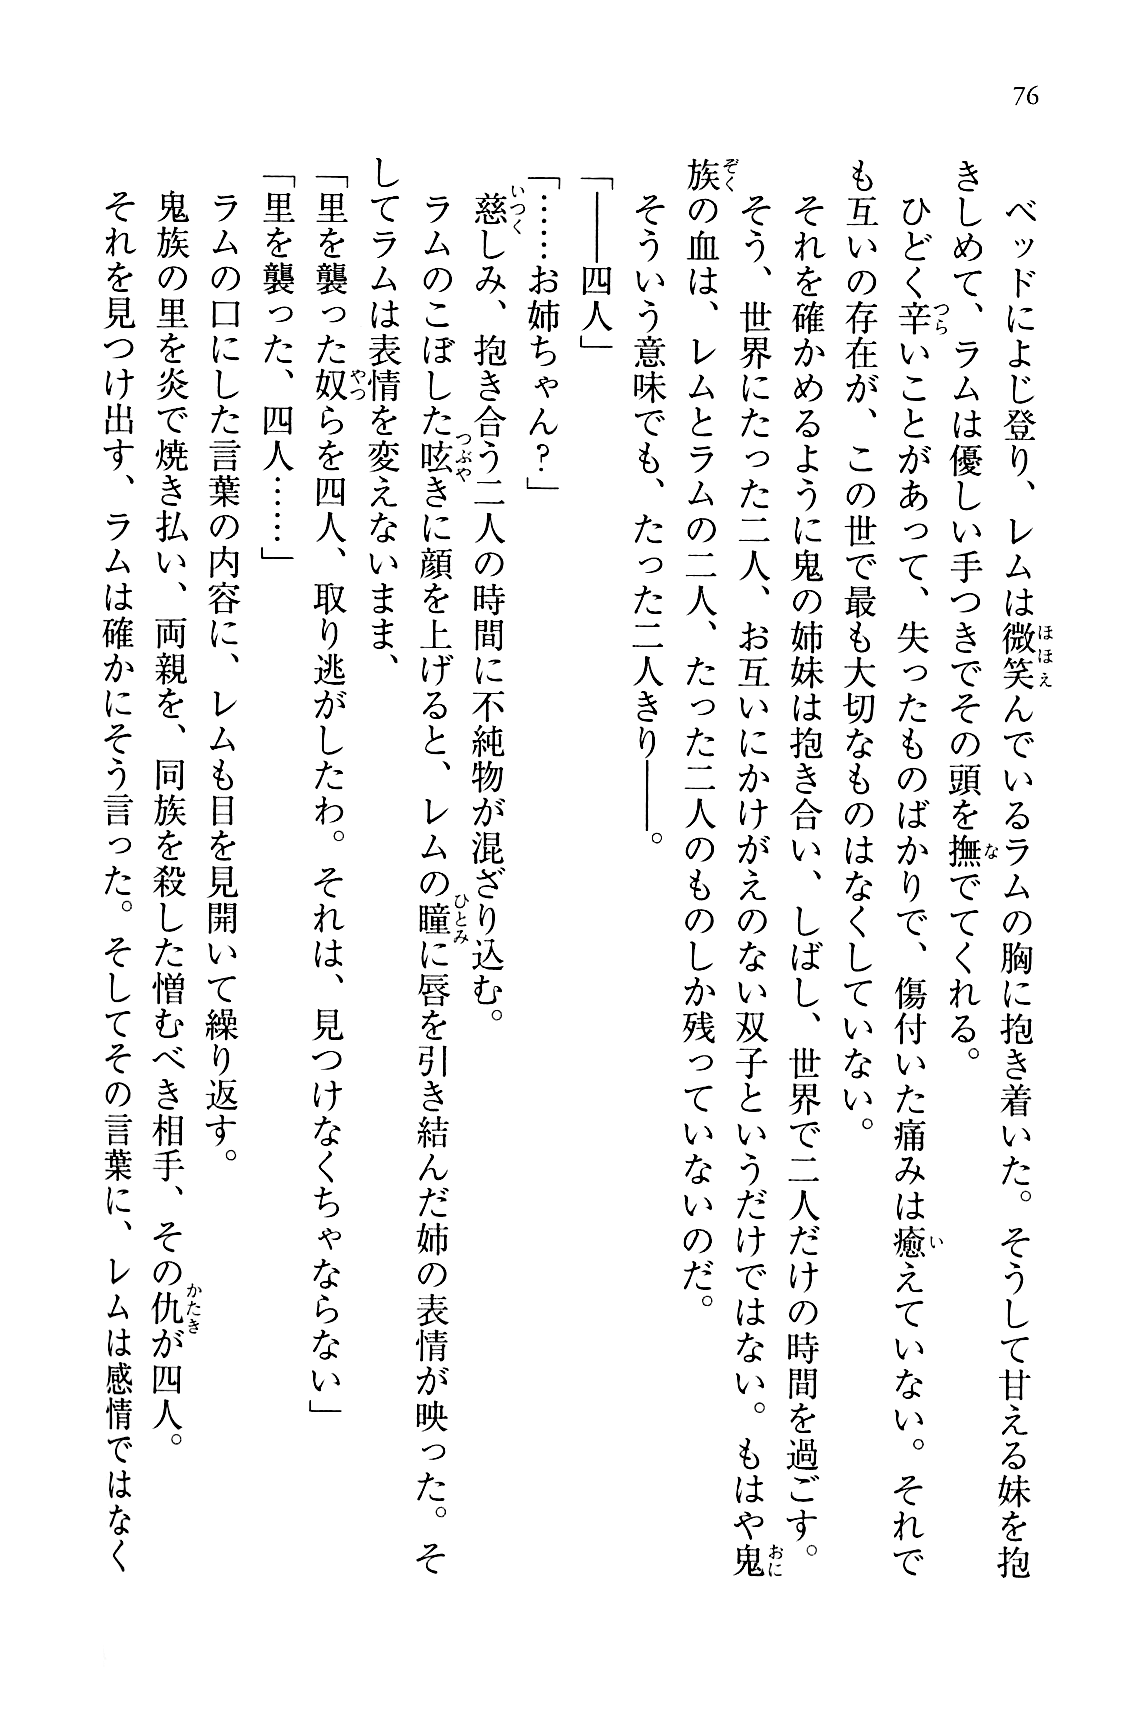 76
　ベッドによじ登り、レムは微笑んでいるラムの胸に抱き着いた。そうして甘える妹を抱
きしめて、ラムは優しい手つきでその頭を撫でてくれる。
　ひどく辛いことがあって、失ったものばかりで、傷付いた痛みは癒えていない。それで
も互いの存在が、この世で最も大切なものはなくしていない。
　それを確かめるように鬼の姉妹は抱き合い、しばし、世界で二人だけの時間を過ごす。
　そう、世界にたった二人、お互いにかけがえのない双子というだけではない。もはや鬼
族の血は、レムとラムの二人、たった二人のものしか残っていないのだ。
　そういう意味でも、たった二人きり――。
「――四人」
「……お姉ちゃん？」
　慈しみ、抱き合う二人の時間に不純物が混ざり込む。
　ラムのこぼした呟きに顔を上げると、レムの瞳に唇を引き結んだ姉の表情が映った。そ
してラムは表情を変えないまま、
「里を襲った奴らを四人、取り逃がしたわ。それは、見つけなくちゃならない」
「里を襲った、四人……」
　ラムの口にした言葉の内容に、レムも目を見開いて繰り返す。
　鬼族の里を炎で焼き払い、両親を、同族を殺した憎むべき相手、その仇が四人。
　それを見つけ出す、ラムは確かにそう言った。そしてその言葉に、レムは感情ではなく